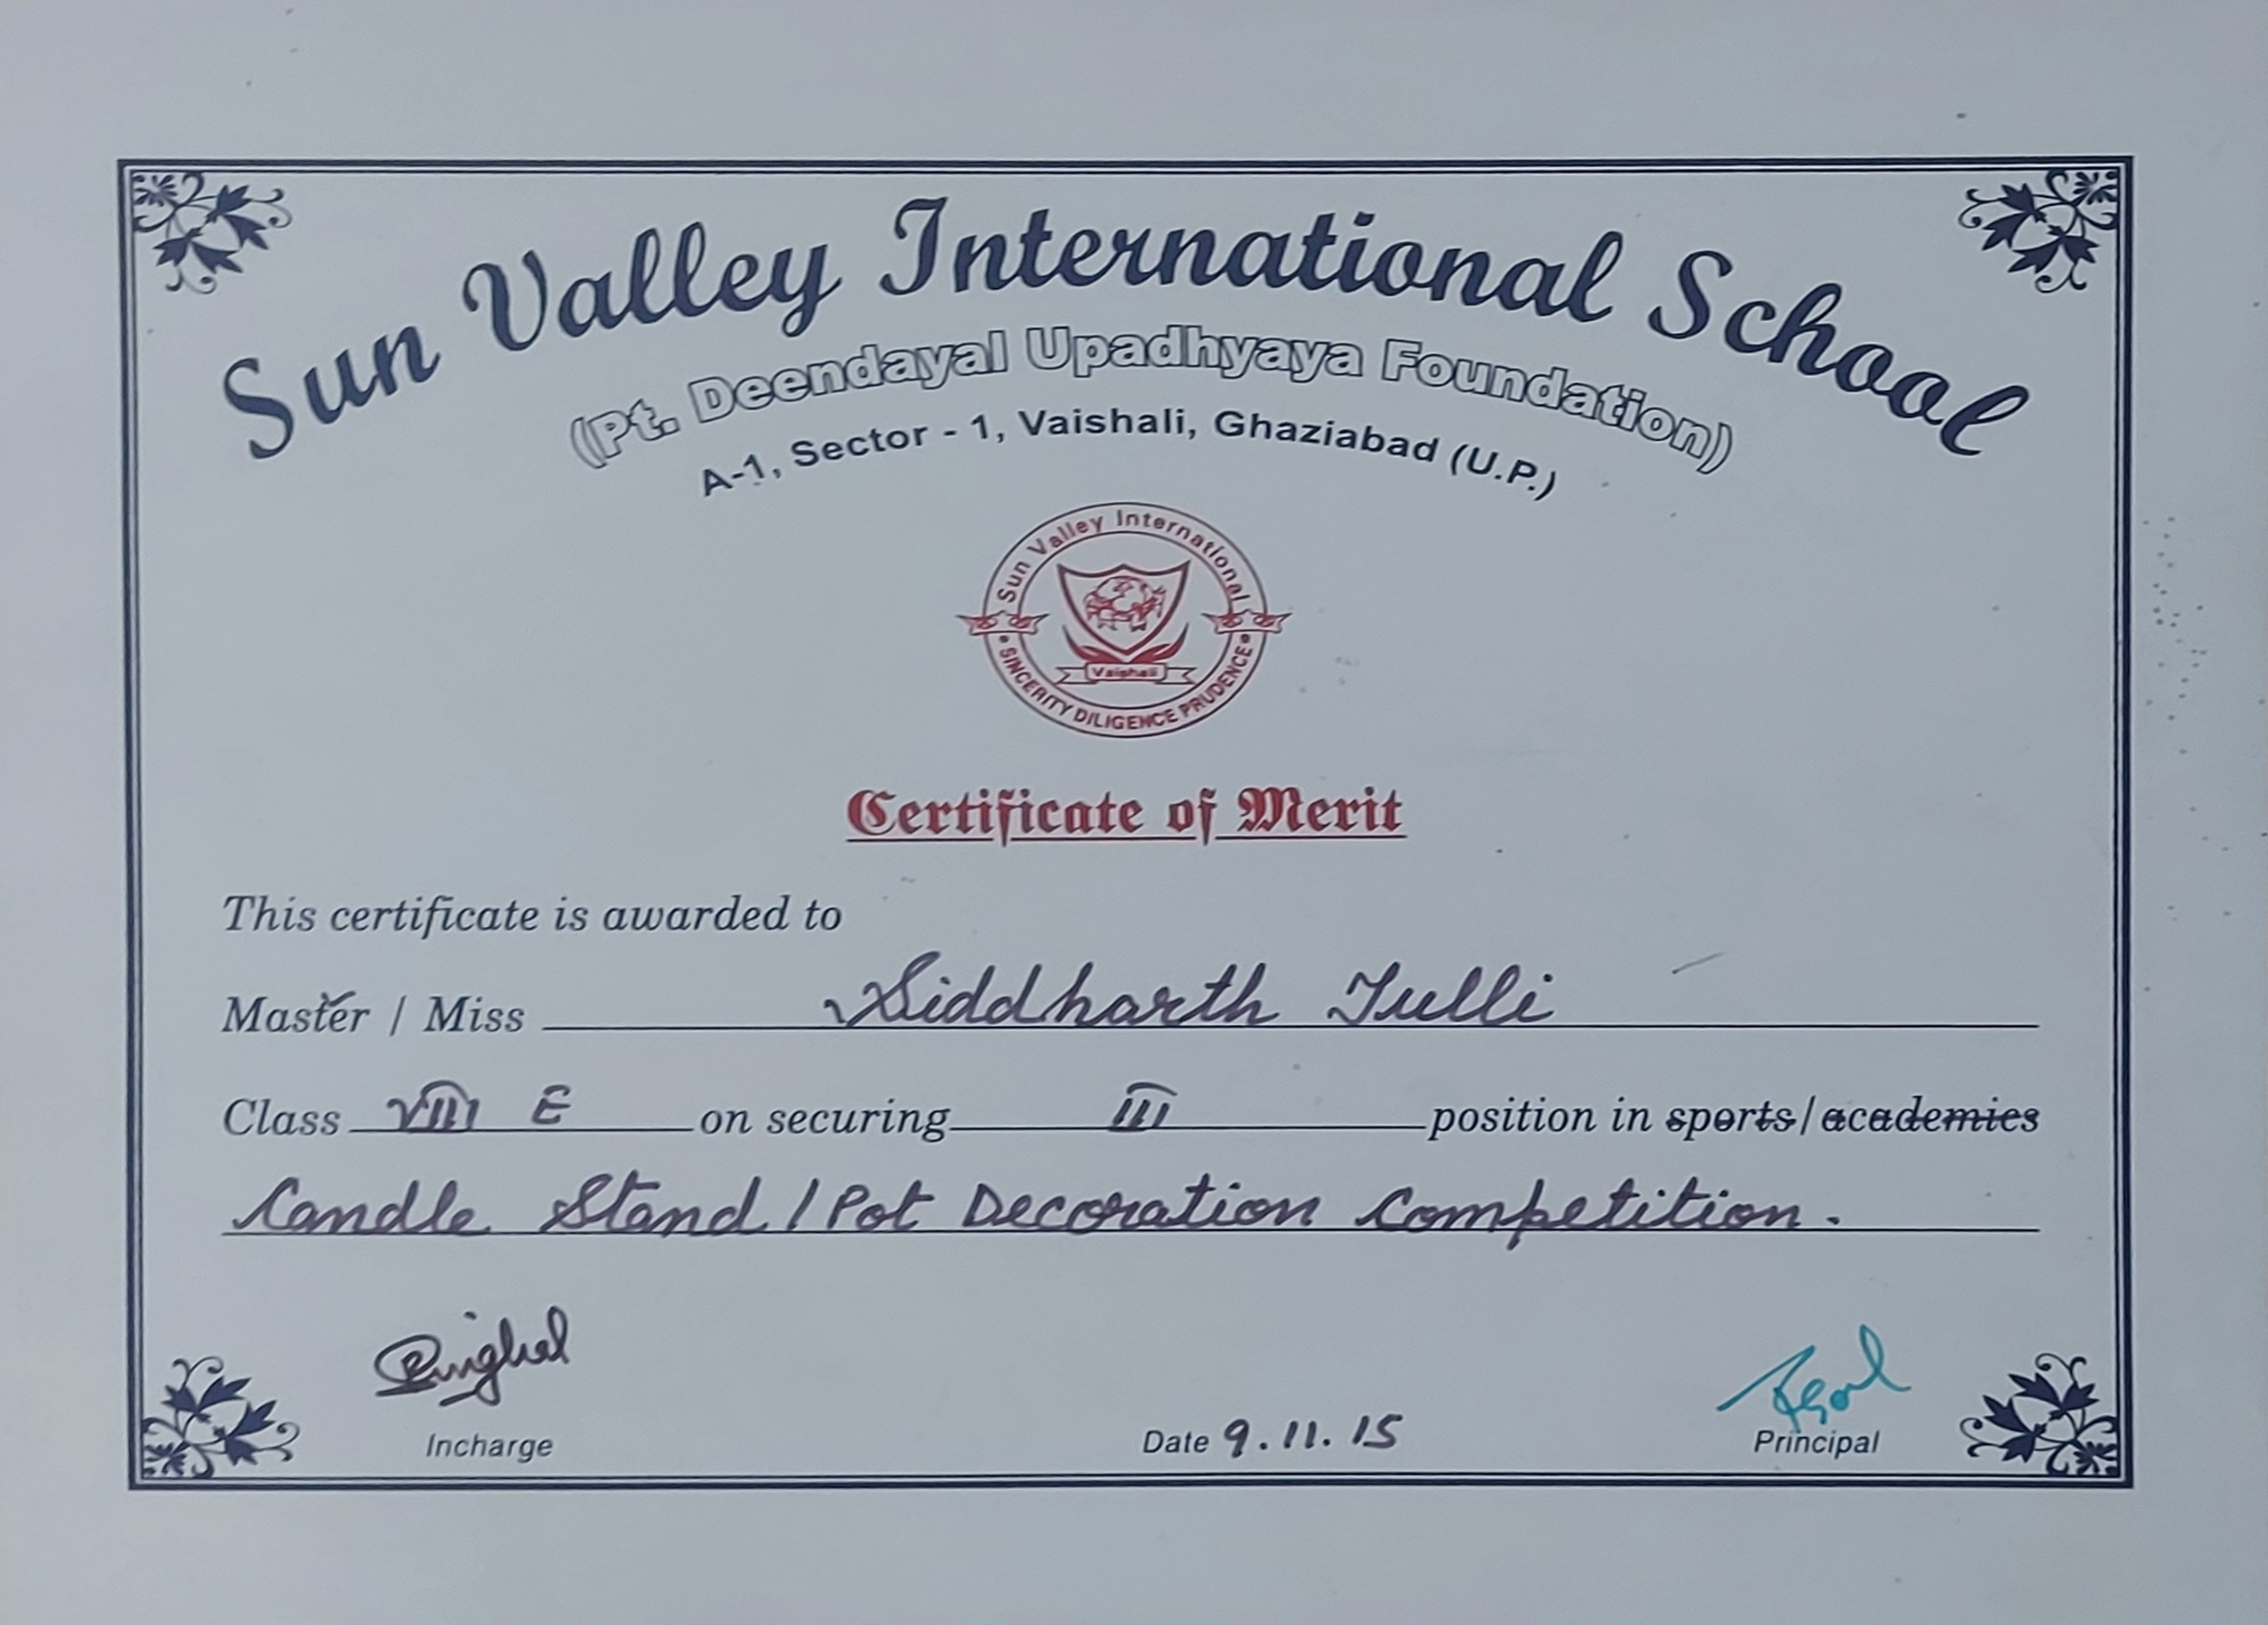 Sun Valley International School
(Pt. Deendayal Upadhyaya Foundation)
A-1, Sector - 1, Vaishali, Ghaziabad (U.P.)
Sun Valley International
Vaishali
SINCERITY DILIGENCE PRUDENCE
Certificate of Merit
This certificate is awarded to
Master / Miss Siddharth Tulli
Class VIII E on securing III position in sports/academies
Candle Stand / Pot Decoration Competition.
Singhal
Incharge
Date 9.11.15
Principal